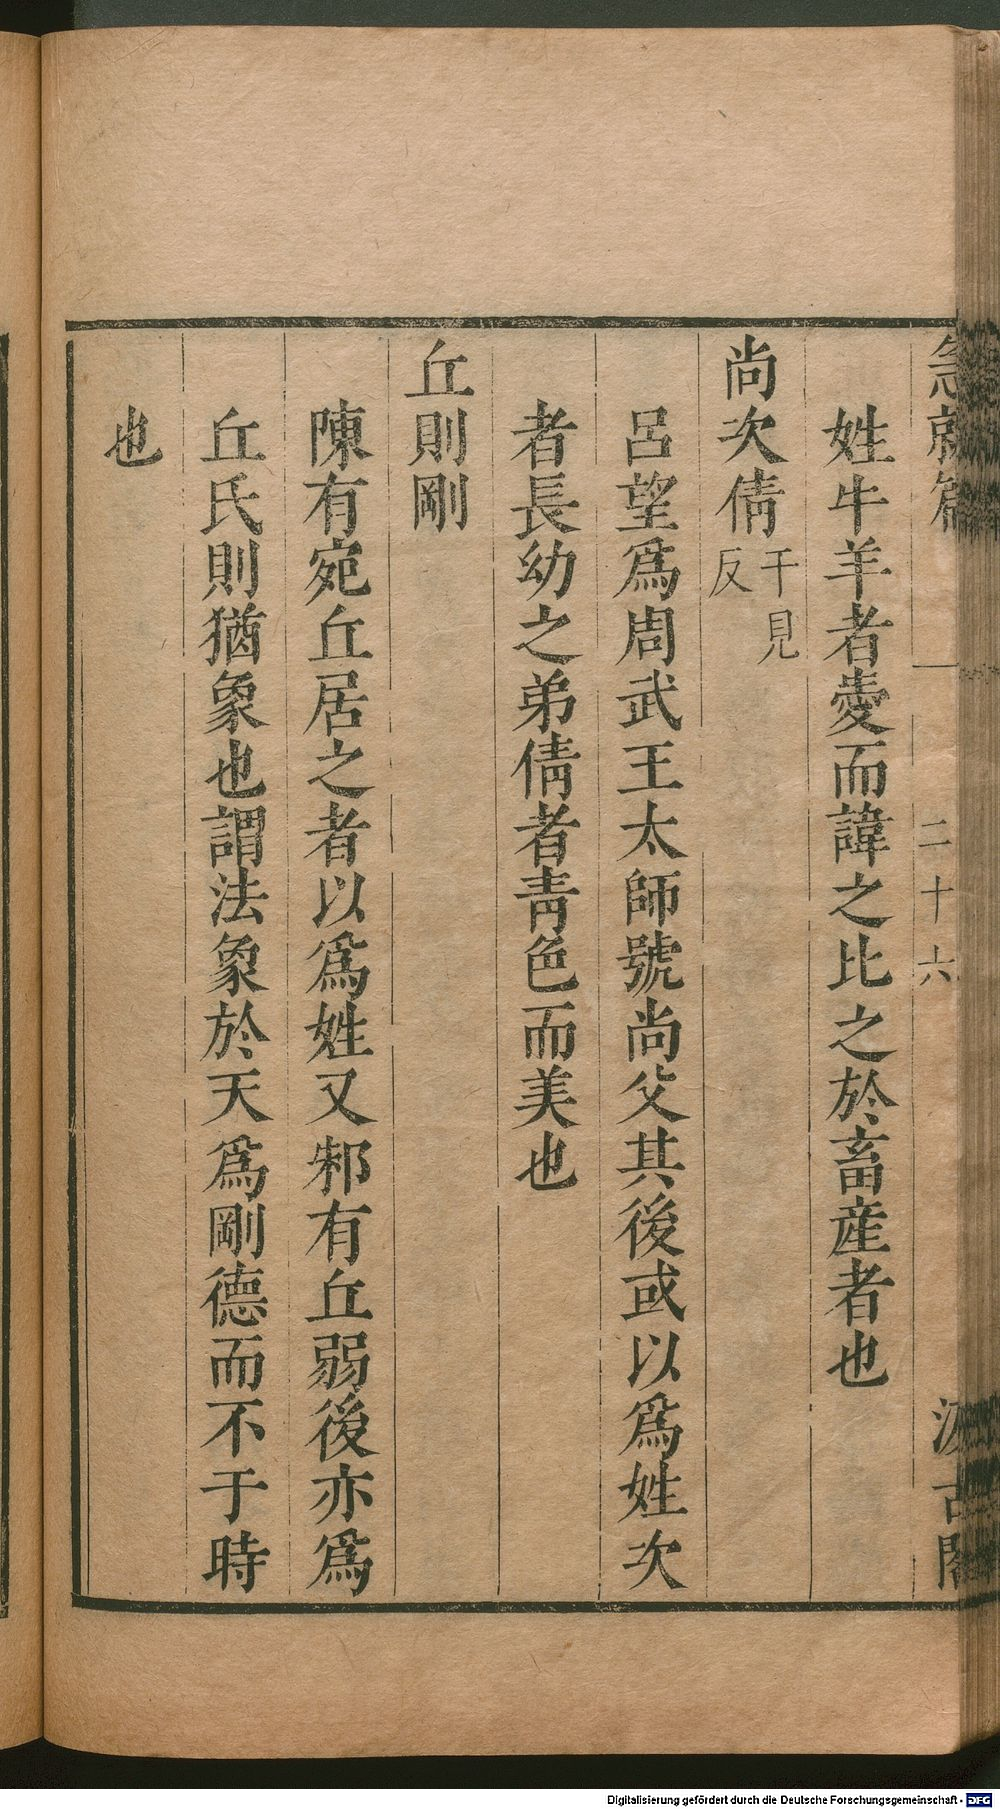 急就篇 二十六 汲古閣
姓牛羊者愛而諱之比之於畜産者也
尚次倩干見反
呂望爲周武王太師號尚父其後或以爲姓次
者長幼之弟倩者靑色而美也
丘則剛
陳有宛丘居之者以爲姓又邾有丘弱後亦爲
丘氏則猶象也謂法象於天爲剛德而不于時
也
Digitalisierung gefördert durch die Deutsche Forschungsgemeinschaft - DFG